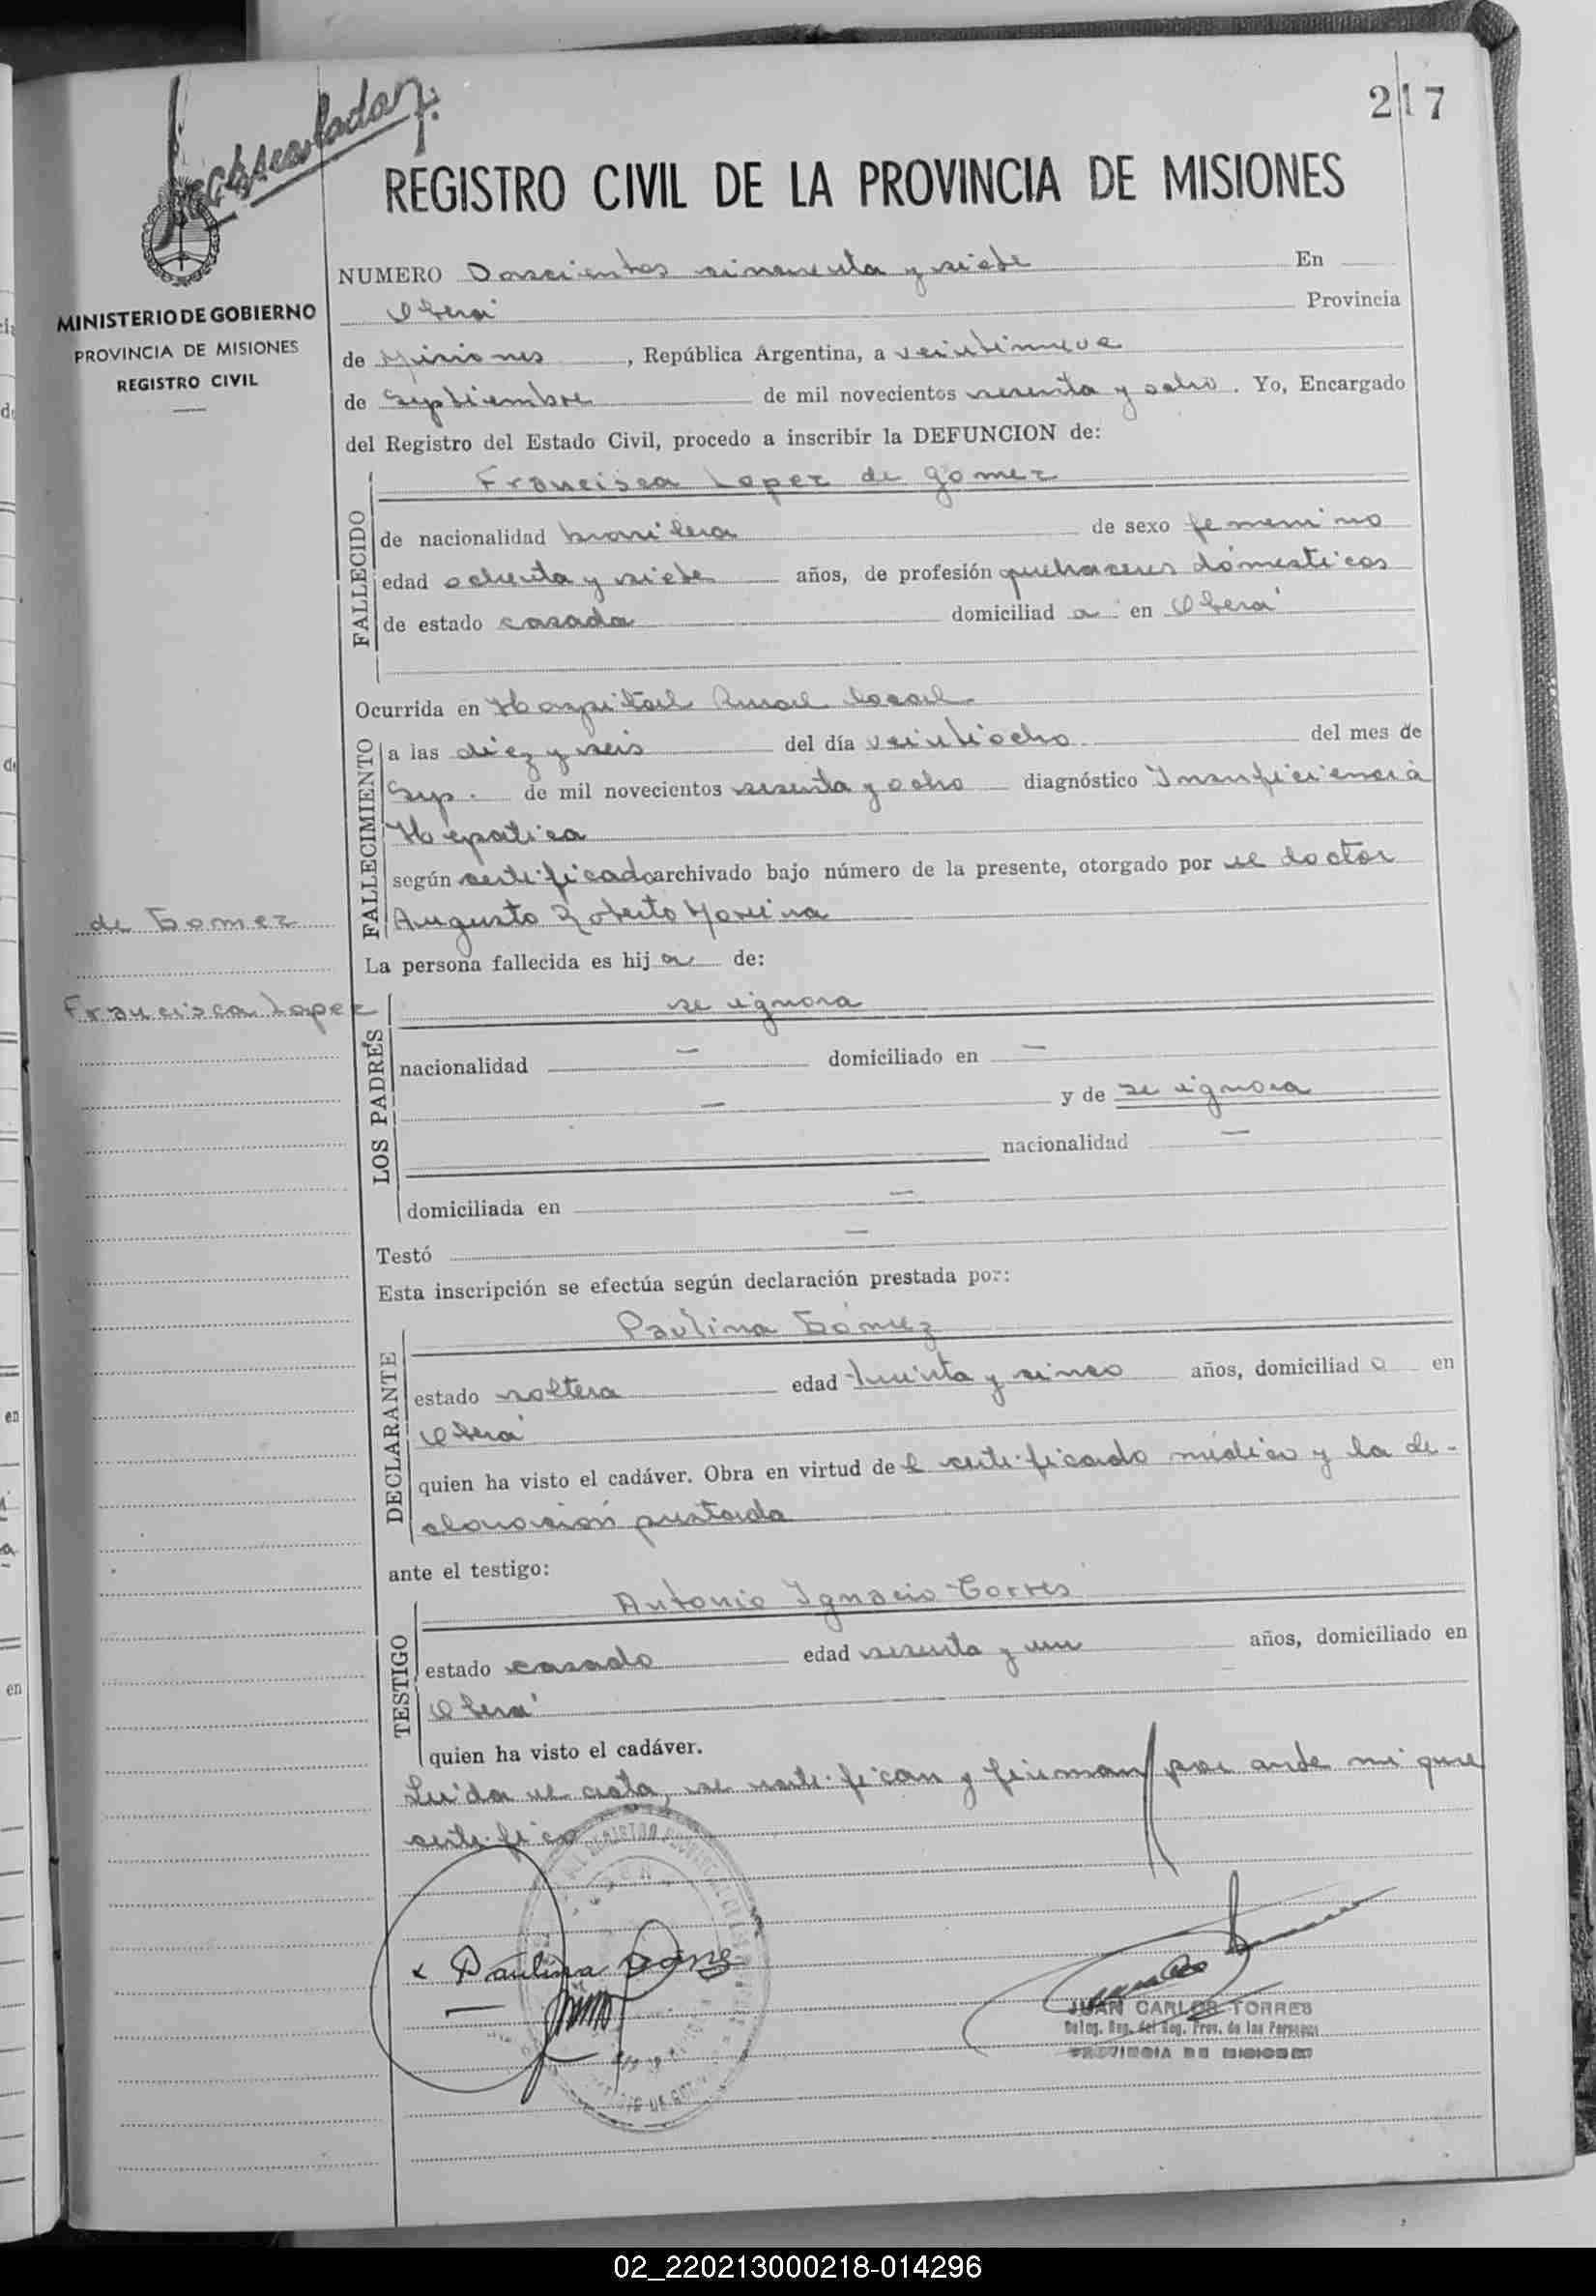 217
REGISTRO CIVIL DE LA PROVINCIA DE MISIONES
MINISTERIO DE GOBIERNO
PROVINCIA DE MISIONES
REGISTRO CIVIL
NUMERO Doscientos sincuenta y siete En
Oberá Provincia
de Misiones, República Argentina, a veintinueve
de Septiembre de mil novecientos sesenta y ocho. Yo, Encargado
del Registro del Estado Civil, procedo a inscribir la DEFUNCION de:
FALLECIDO
Francisca Lopez de Gomez
de nacionalidad brasilera de sexo femenino
edad ochenta y siete años, de profesión quehaceres domesticos
de estado casada domiciliad a en Oberá
Ocurrida en Hospital Rural local
FALLECIMIENTO
a las diez y seis del día veintiocho del mes de
Sep. de mil novecientos sesenta y ocho diagnóstico Insuficiencia
Hepatica
según certificado archivado bajo número de la presente, otorgado por el doctor
Augusto Roberto
de Gomez
Francisca Lopez
La persona fallecida es hij a de:
LOS PADRES
se ignora
nacionalidad — domiciliado en —
— y de se ignora
nacionalidad —
domiciliada en —
Testó —
Esta inscripción se efectúa según declaración prestada por:
DECLARANTE
Paulina Gómez
estado soltera edad treinta y cinco años, domiciliad o en
Oberá
quien ha visto el cadáver. Obra en virtud de l certificado médico y la de-
claración prestada
ante el testigo:
TESTIGO
Antonio Ignacio Torres
estado casado edad sesenta y un años, domiciliado en
Oberá
quien ha visto el cadáver.
Leida el acta, se ratifican y firman por ante mi que
certifico
x Paulina Gomez
JUAN CARLOS TORRES
Deleg. Reg. del Reg. Prov. de las Personas
PROVINCIA DE MISIONES
02_220213000218-014296